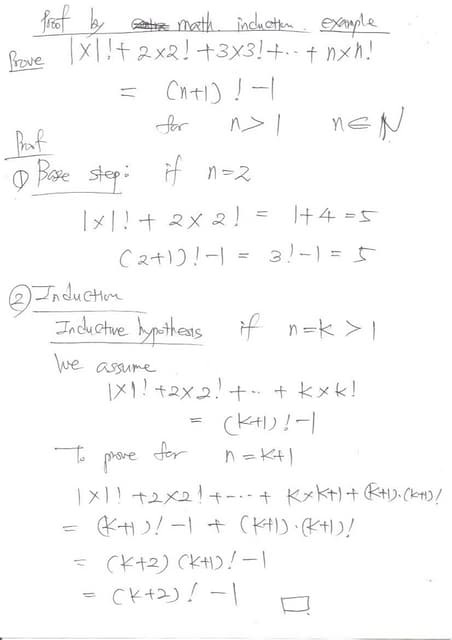 Proof by math. induction. example
Prove 1×1!+2×2!+3×3!+...+n×n!
= (n+1)!-1
for n>1 n∈ℕ
Proof
① Base step: if n=2
1×1!+2×2! = 1+4=5
(2+1)!-1 = 3!-1=5
② Induction
Inductive hypothesis if n=k>1
We assume
1×1!+2×2!+...+k×k!
= (k+1)!-1
To prove for n=k+1
1×1!+2×2!+---+k×k+1+(k+1)·(k+1)!
= (k+1)!-1+(k+1)·(k+1)!
= (k+2)(k+1)!-1
= (k+2)!-1 □